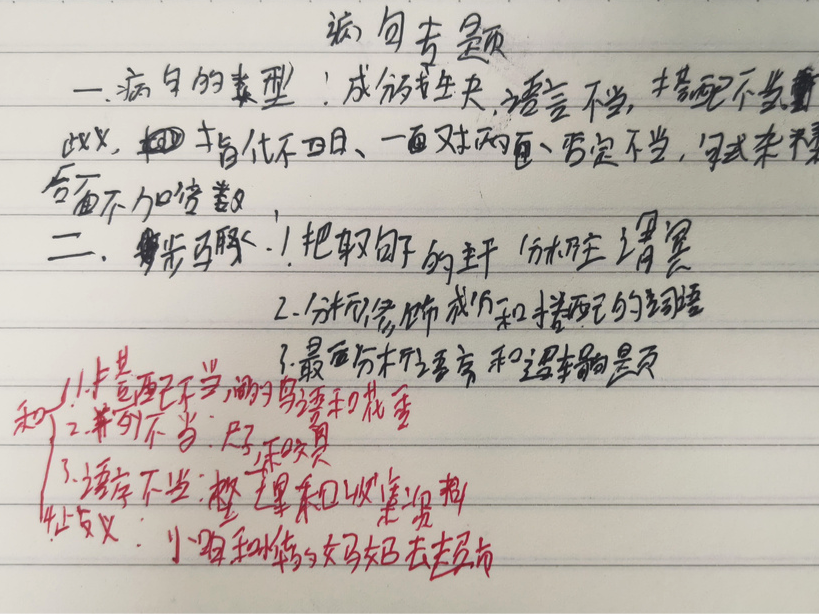 病句专题
一.病句的类型:成分残缺,语言不当,搭配不当
歧义,指代不明、一面对两面、否定不当,句式杂糅
后面不加倍数
二.步骤:1.把取句子的主干 分析主谓宾
2.分析修饰成分和搭配的词语
3.最后分析语言和逻辑问题
和 1.搭配不当,鸟语和花香
2.并列不当:尺子和文具
3.语序不当:整理和收集资料
4.歧义:小明和小华的妈妈去超市